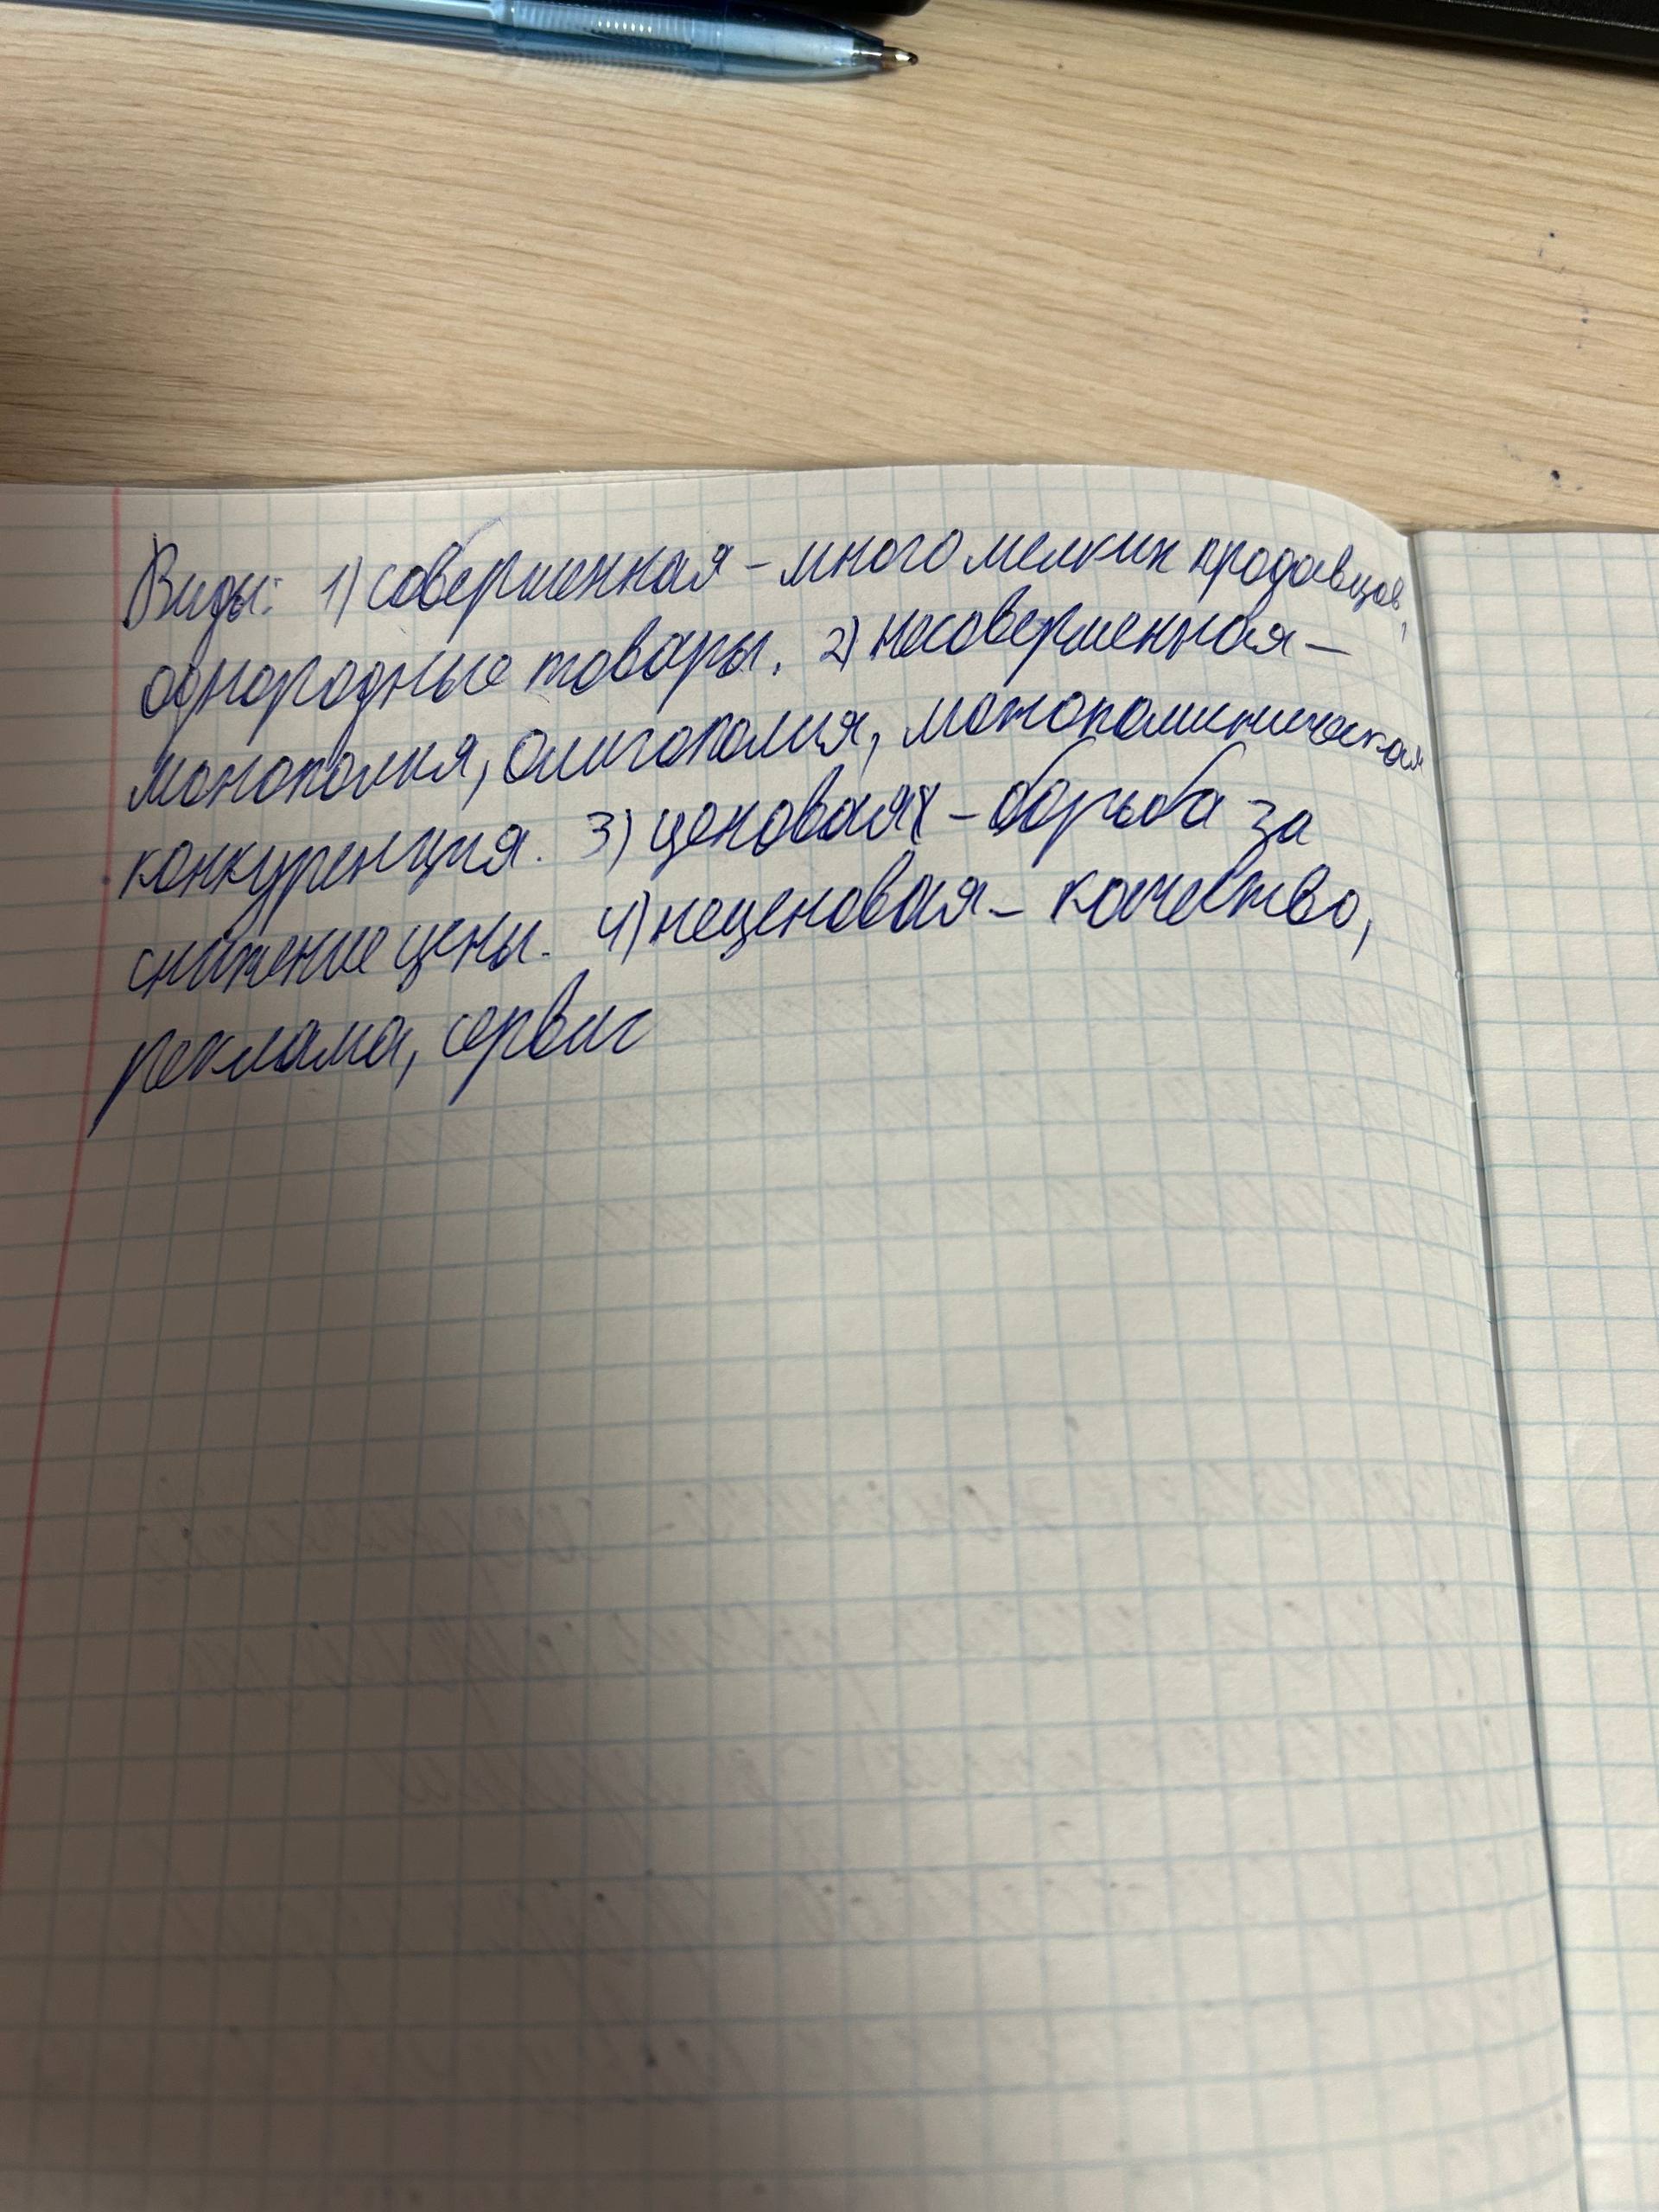 Виды: 1) совершенная – много мелких продавцов,
однородные товары. 2) несовершенная –
монополия, олигополия, монополистическая
конкуренция. 3) ценовая – борьба за
снижение цены. 4) неценовая – качество,
реклама, сервис